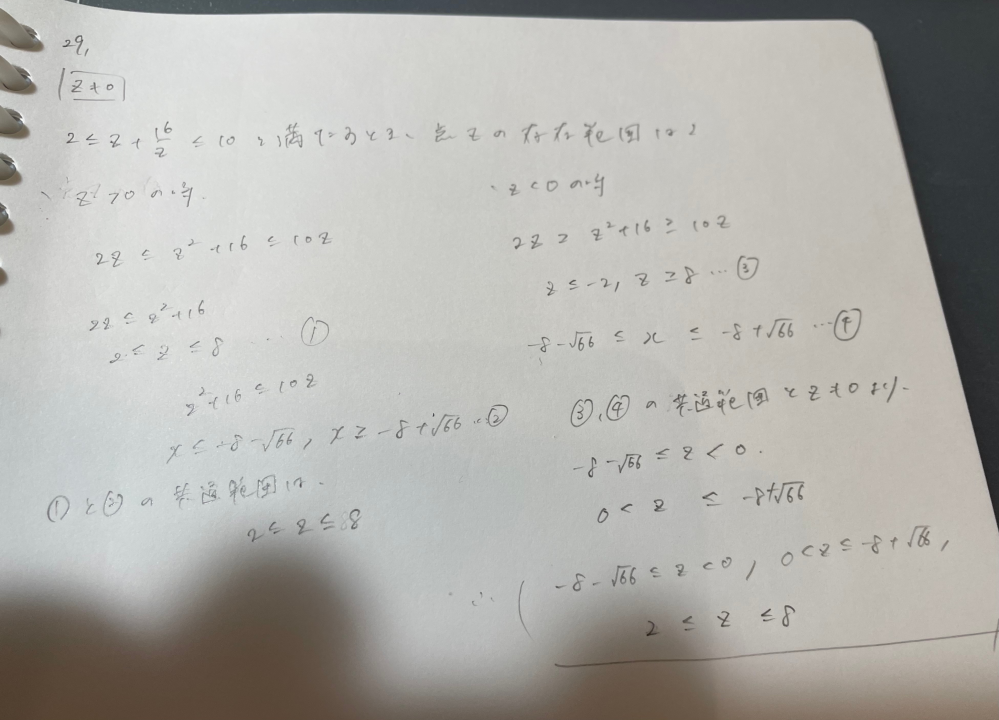 29,
z≠0
2 ≤ z + 16/z ≤ 10 を満たすとき、点 z の存在範囲は?
・z > 0 の時.
2z ≤ z² + 16 ≤ 10z
2z ≤ z² + 16
2 ≤ z ≤ 8 … ①
z² + 16 ≤ 10z
x ≤ -8 - √66, x ≥ -8 + √66 … ②
① と ② の 共通範囲は.
2 ≤ z ≤ 8
・z < 0 の時
2z ≥ z² + 16 ≥ 10z
z ≤ -2, z ≥ 8 … ③
-8 - √66 ≤ x ≤ -8 + √66 … ④
③, ④ の 共通範囲 と z ≠ 0 より.
-8 - √66 ≤ z < 0.
0 < z ≤ -8 + √66
∴ ( -8 - √66 ≤ z < 0, 0 < z ≤ -8 + √66,
2 ≤ z ≤ 8